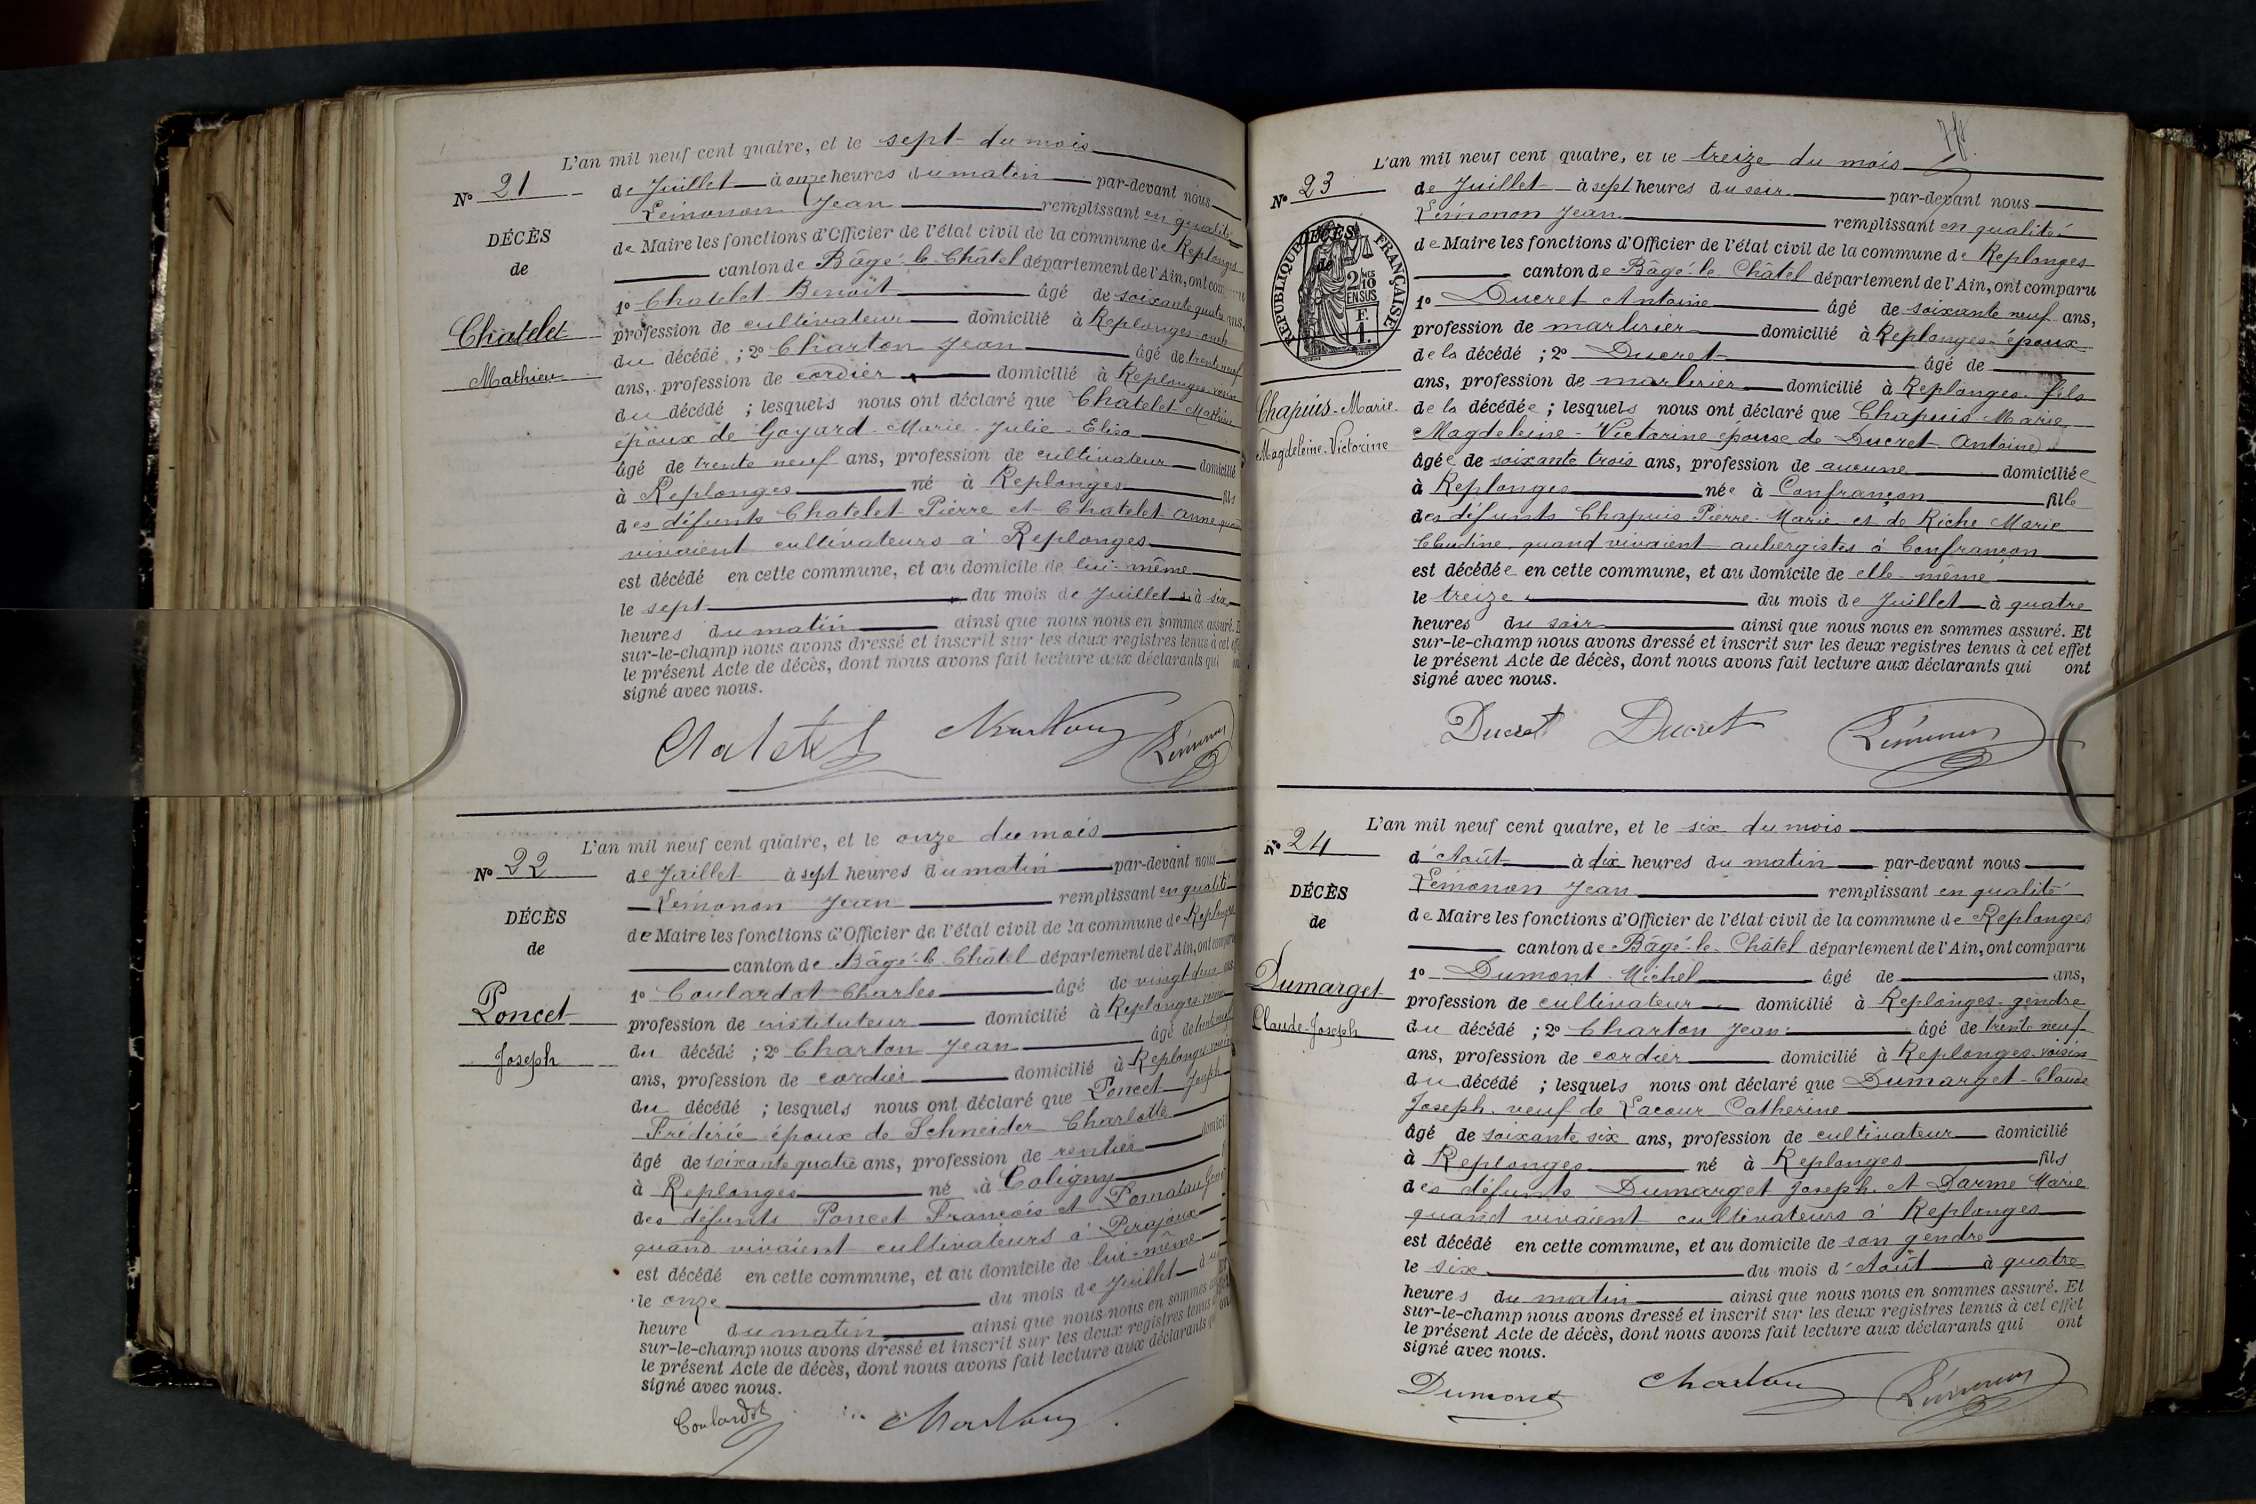 L'an mil neuf cent quatre, et le sept du mois
No 21
de Juillet à onze heures du matin par-devant nous
Lémonon Jean remplissant en qualité
de Maire les fonctions d'Officier de l'état civil de la commune de Replonges
DÉCÈS
de
canton de Bâgé-le-Châtel département de l'Ain, ont comparu
1o Chatelet Benoît âgé de soixante quatre ans,
Chatelet
profession de cultivateur domicilié à Replonges oncle
du décédé ; 2o Charton Jean âgé de trente neuf
Mathieu
ans, profession de cordier domicilié à Replonges voisin
du décédé ; lesquels nous ont déclaré que Chatelet Mathieu
époux de Goyard Marie Julie Elisa
âgé de trente neuf ans, profession de cultivateur domicilié
à Replonges né à Replonges fils
des défunts Chatelet Pierre et Chatelet Anne quand
vivaient cultivateurs à Replonges
est décédé en cette commune, et au domicile de lui-même
le sept du mois de Juillet à six
heures du matin ainsi que nous nous en sommes assuré.
sur-le-champ nous avons dressé et inscrit sur les deux registres tenus à cet effet
le présent Acte de décès, dont nous avons fait lecture aux déclarants qui
signé avec nous.
Chatelet Charton Lémonon
L'an mil neuf cent quatre, et le onze du mois
No 22
de Juillet à sept heures du matin par-devant nous
Lémonon Jean remplissant en qualité
de Maire les fonctions d'Officier de l'état civil de la commune de Replonges
DÉCÈS
de
canton de Bâgé-le-Châtel département de l'Ain, ont comparu
1o Coulardot Charles âgé de vingt deux ans
Poncet
profession de instituteur domicilié à Replonges voisin
du décédé ; 2o Charton Jean âgé de trente neuf
Joseph
ans, profession de cordier domicilié à Replonges voisin
du décédé ; lesquels nous ont déclaré que Poncet Joseph
Frédéric époux de Schneider Charlotte
âgé de soixante quatre ans, profession de rentier domicilié
à Replonges né à Coligny
des défunts Poncet François et
quand vivaient cultivateurs à Pirajoux
est décédé en cette commune, et au domicile de lui-même
le onze du mois de Juillet à
heure du matin ainsi que nous nous en sommes
sur-le-champ nous avons dressé et inscrit sur les deux registres tenus
le présent Acte de décès, dont nous avons fait lecture aux déclarants
signé avec nous.
Coulardot Charton
L'an mil neuf cent quatre, et le treize du mois
No 23
de Juillet à sept heures du soir par-devant nous
Lémonon Jean remplissant en qualité
de Maire les fonctions d'Officier de l'état civil de la commune de Replonges
DÉCÈS
de
RÉPUBLIQUE FRANÇAISE
2/10 EN SUS
F. 1.
canton de Bâgé-le-Châtel département de l'Ain, ont comparu
1o Ducret Antoine âgé de soixante neuf ans,
profession de marbrier domicilié à Replonges époux
de la décédé ; 2o Ducret âgé de
ans, profession de marbrier domicilié à Replonges fils
Chapuis Marie
Magdeleine-Victorine
de la décédée ; lesquels nous ont déclaré que Chapuis Marie
Magdeleine-Victorine épouse de Ducret Antoine
âgée de soixante trois ans, profession de aucune domiciliée
à Replonges née à Confrançon fille
des défunts Chapuis Pierre-Marie et de Riche Marie
Claudine quand vivaient aubergistes à Confrançon
est décédée en cette commune, et au domicile de elle-même
le treize du mois de Juillet à quatre
heures du soir ainsi que nous nous en sommes assuré. Et
sur-le-champ nous avons dressé et inscrit sur les deux registres tenus à cet effet
le présent Acte de décès, dont nous avons fait lecture aux déclarants qui ont
signé avec nous.
Ducret Ducret Lémonon
L'an mil neuf cent quatre, et le six du mois
No 24
d'Août à dix heures du matin par-devant nous
Lémonon Jean remplissant en qualité
DÉCÈS
de
de Maire les fonctions d'Officier de l'état civil de la commune de Replonges
canton de Bâgé-le-Châtel département de l'Ain, ont comparu
1o Dumont Michel âgé de ans,
Dumarget
profession de cultivateur domicilié à Replonges gendre
Claude-Joseph
du décédé ; 2o Charton Jean âgé de trente neuf
ans, profession de cordier domicilié à Replonges voisin
du décédé ; lesquels nous ont déclaré que Dumarget Claude
Joseph veuf de Lacour Catherine
âgé de soixante six ans, profession de cultivateur domicilié
à Replonges né à Replonges fils
des défunts Dumarget Joseph et Darme Marie
quand vivaient cultivateurs à Replonges
est décédé en cette commune, et au domicile de son gendre
le six du mois d'Août à quatre
heures du matin ainsi que nous nous en sommes assuré. Et
sur-le-champ nous avons dressé et inscrit sur les deux registres tenus à cet effet
le présent Acte de décès, dont nous avons fait lecture aux déclarants qui ont
signé avec nous.
Dumont Charton Lémonon